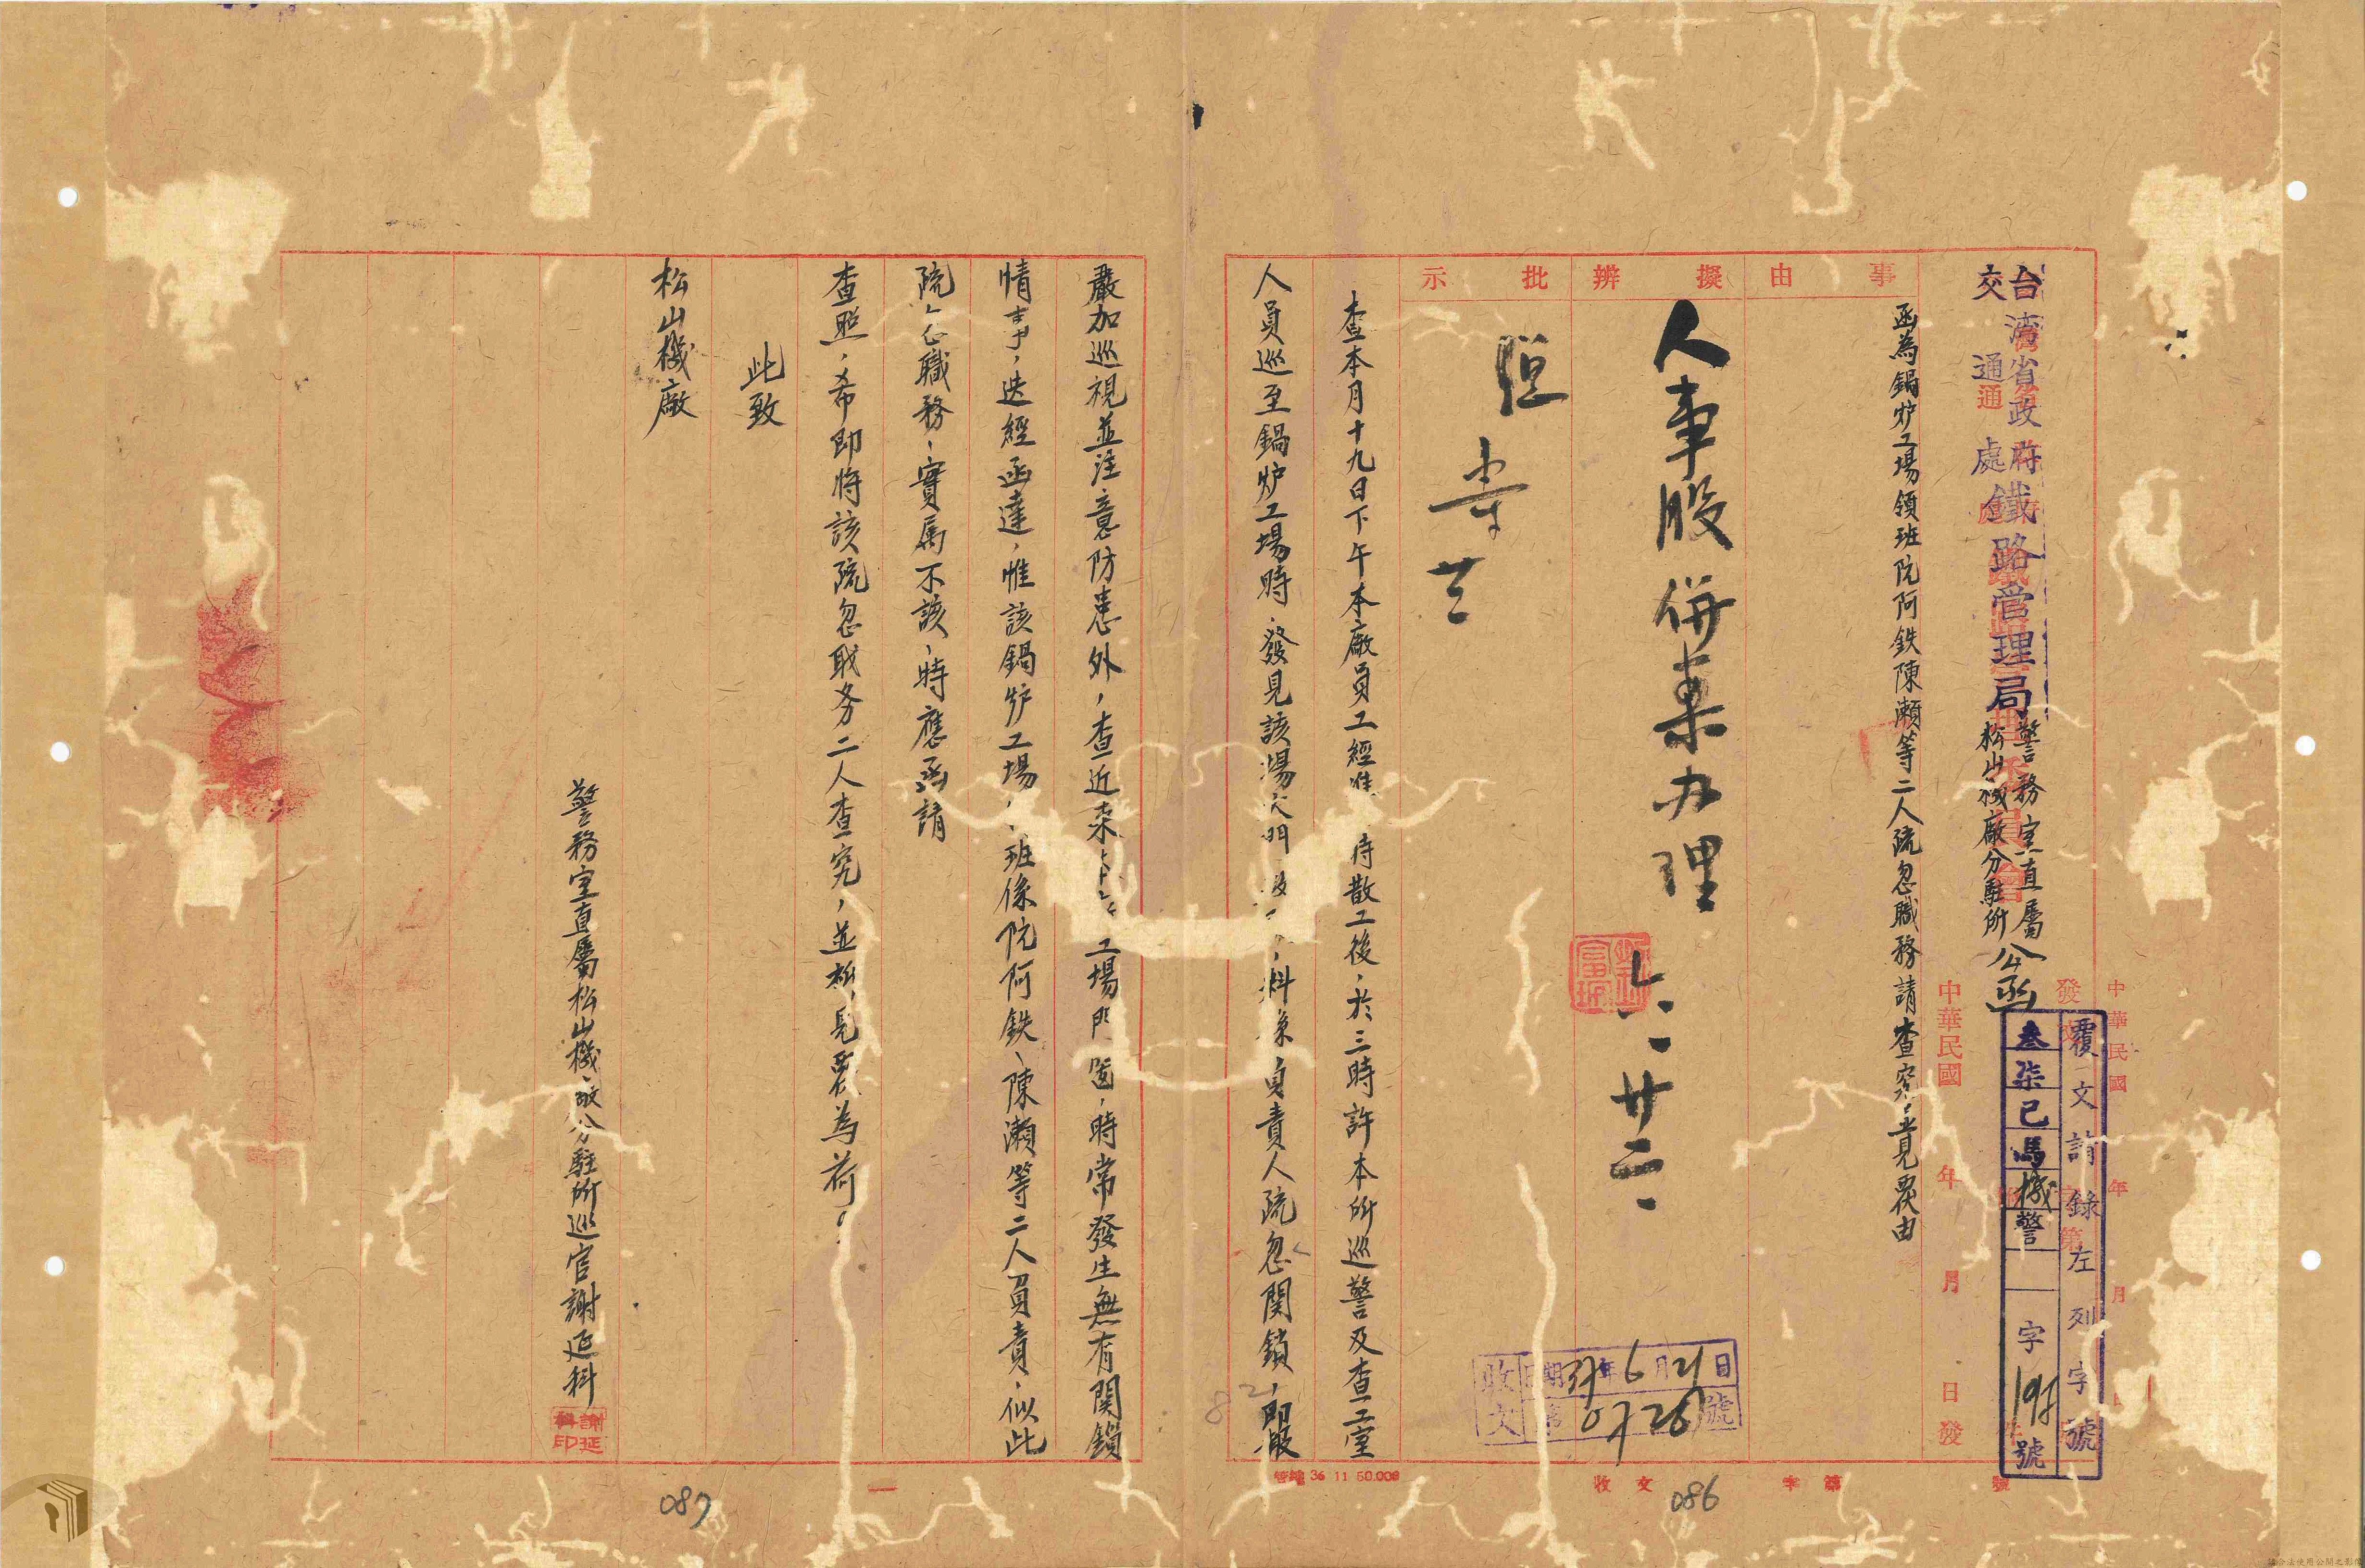 台湾省政府
交通處
鐵路管理局
警務室直屬
松山機廠分駐所
公函
覆文請錄左列字號
叁柒已馬機警
字195號
中華民國 年 月 日發
事由
函為鍋炉工場領班阮阿鉄陳瀨等二人疏忽職務請查究並見覆由
擬辨
人事股併案办理
六、廿二、
批示
查本月十九日下午本廠員工經准 待散工後，於三時許本所巡警及查工室
人員巡至鍋炉工場時，發見該場大門 料 負責人疏忽関鎖，即報
嚴加巡視並注意防患外，查近來 工場門窗，時常發生無有関鎖
情事，迭經函達，惟該鍋炉工場， 班係阮阿鉄、陳瀨等二人負責，似此
疏忽職務，實属不該，時應函請
查照，希即將該疏忽职务二人查究，並 見覆為荷。
此致
松山機廠
警務室直屬松山機廠分駐所巡官謝延科
謝延科印
收文
日期37年6月21日
第 號
管總 36 11 50.000
收文 字第 號
086
一
087